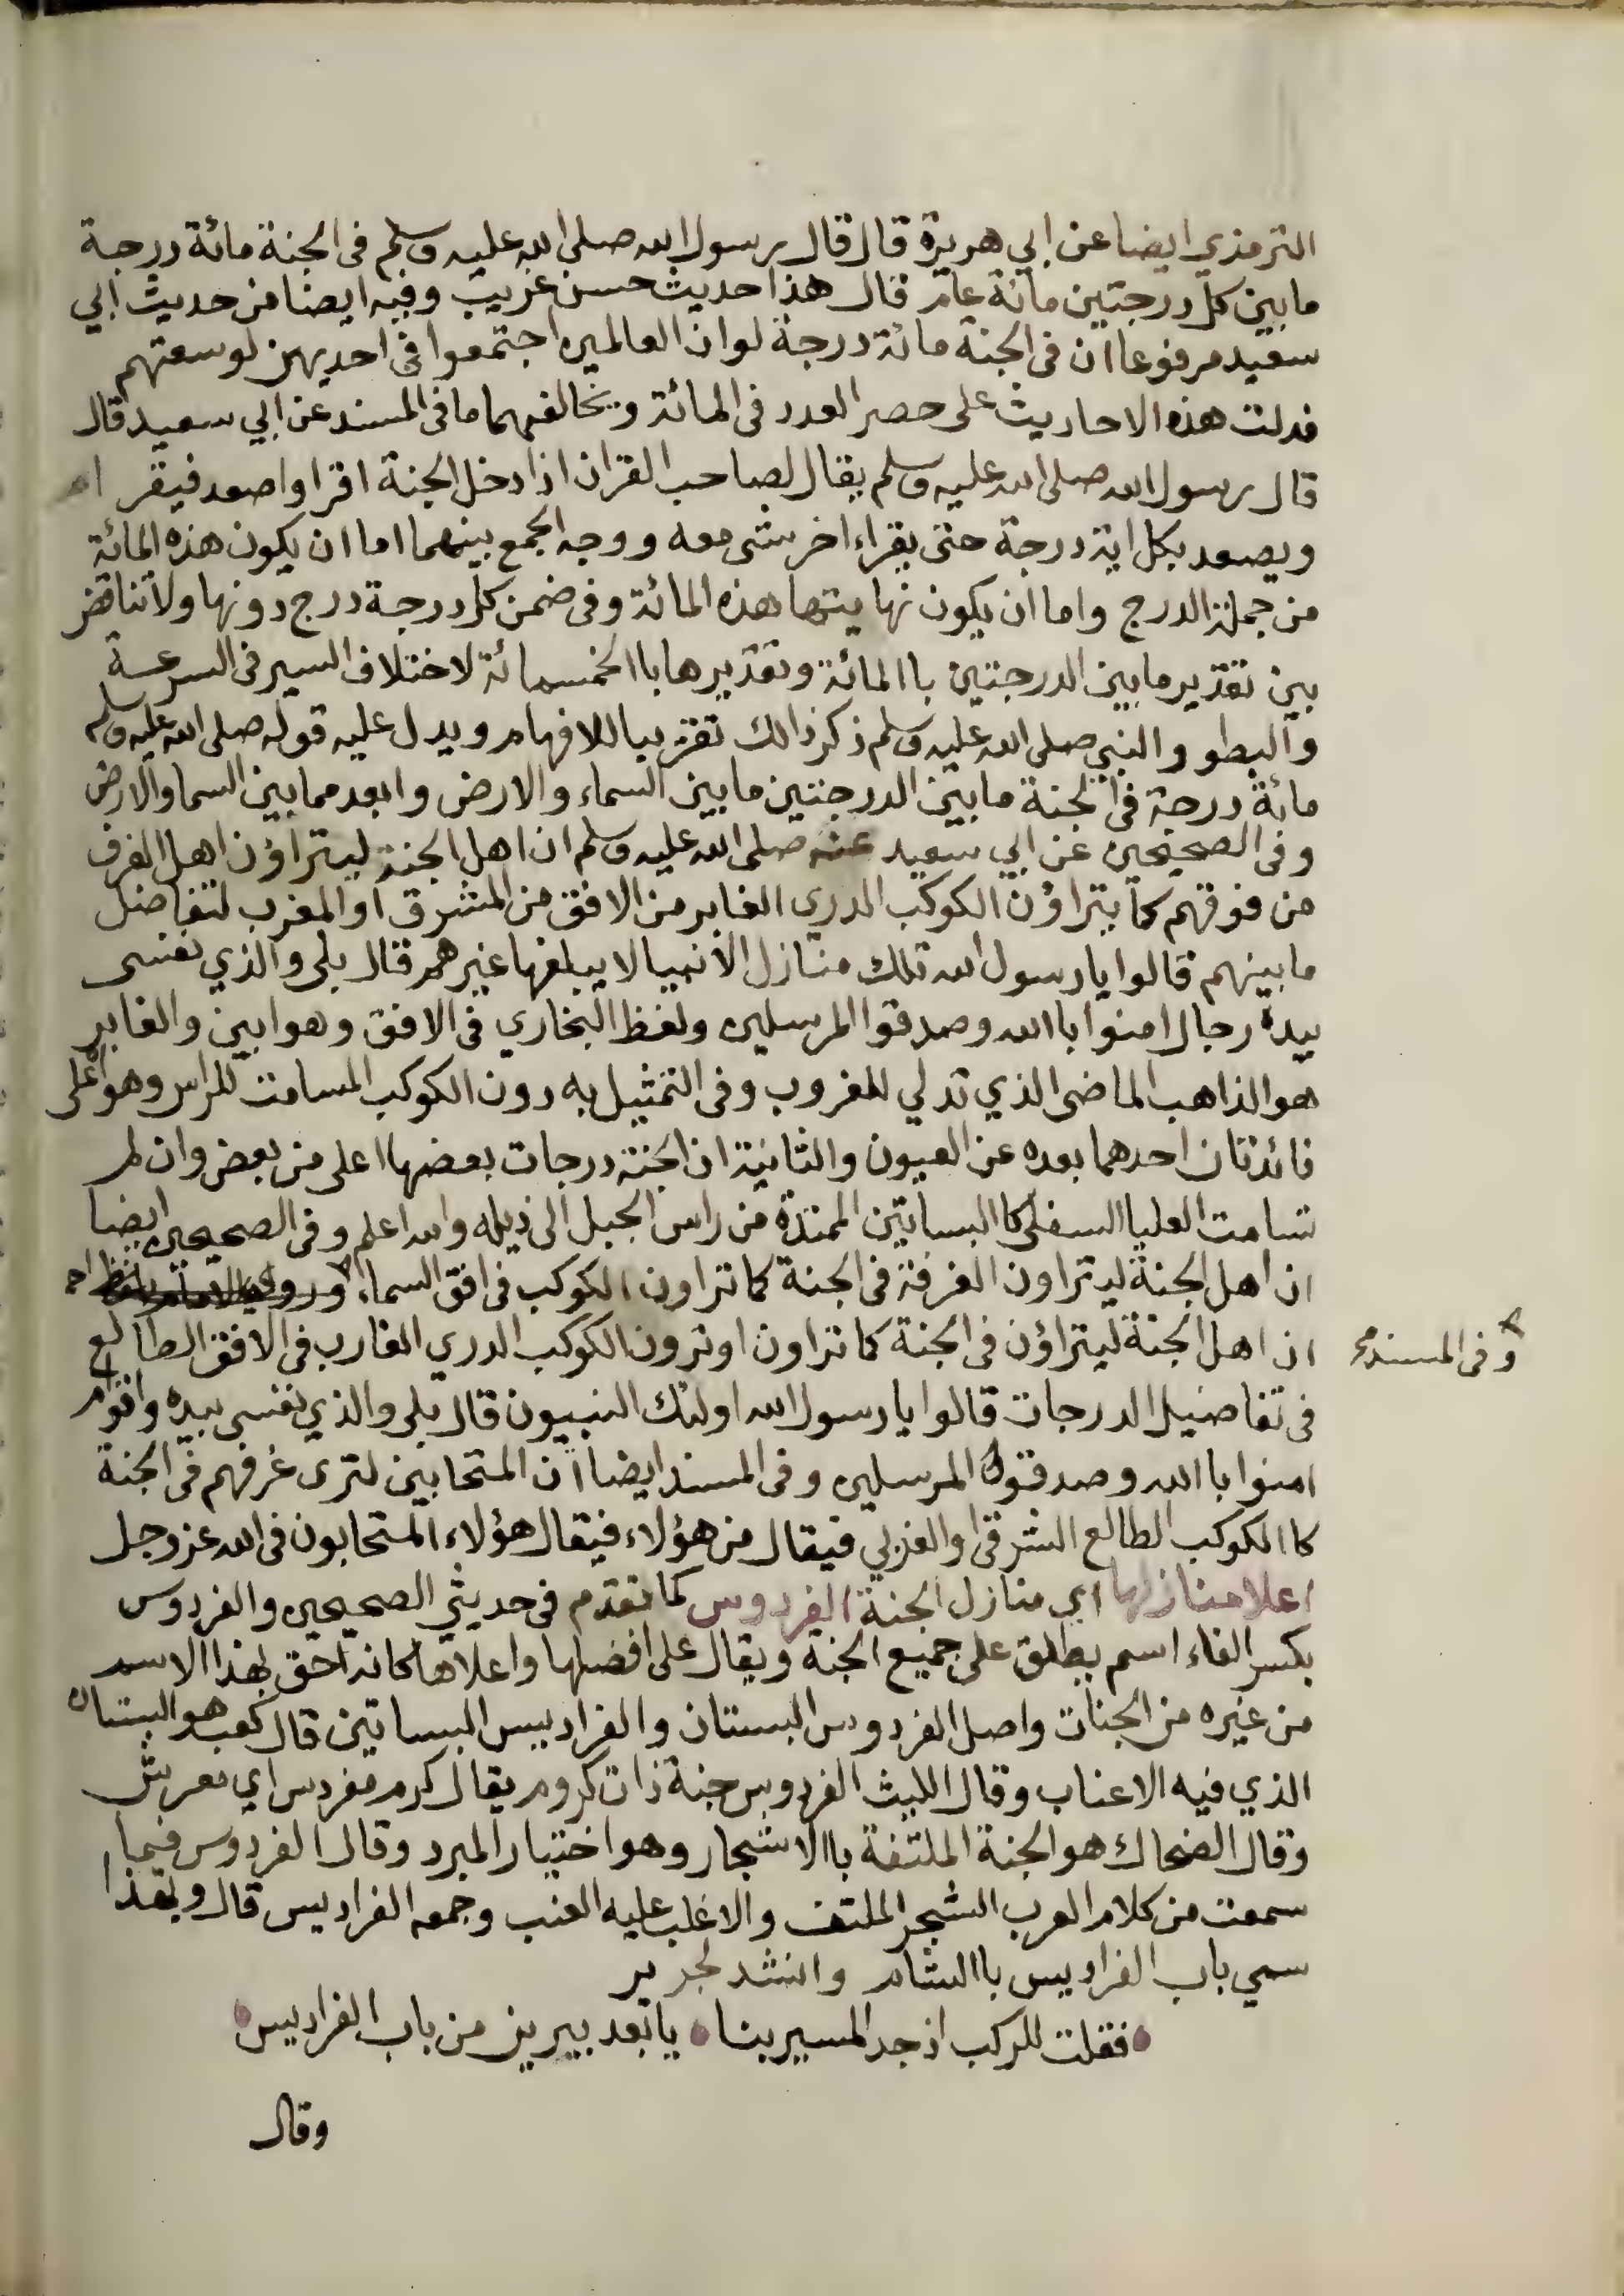 الترمذي ايضا عن ابي هريرة قال قال رسول الله صلى الله عليه وسلم فى الجنة مائة درجة
ما بين كل درجتين مائة عام قال هذا حديث حسن غريب وفيه ايضا من حديث ابي
سعيد مرفوعا ان فى الجنة مائة درجة لو ان العالمين اجتمعوا فى احديهن لوسعتهم
فدلت هذه الاحاديث على حصر العدد فى المائة ويخالفهما ما فى المسند عن ابي سعيد قال
قال رسول الله صلى الله عليه وسلم يقال لصاحب القران اذا دخل الجنة اقرا واصعد فيقر
ويصعد بكل اية درجة حتى يقراء اخر شئ معه ووجه الجمع بينهما اما ان يكون هذه المائة
من جملة الدرج واما ان يكون نهايتها هذه المائة وفى ضمن كل درجة درج دونها ولا تناقض
بين تقدير ما بين الدرجتين با المائة وتقديرها با الخمسمائة لاختلاف السير فى السرعة
والبطو والنبي صلى الله عليه وسلم ذكر ذالك تقريبا للافهام ويدل عليه قوله صلى الله عليه وسلم
مائة درجة فى الجنة ما بين الدرجتين ما بين السماء والارض وابعد مما بين السما والارض
وفى الصحيحين عن ابي سعيد عنه صلى الله عليه وسلم ان اهل الجنة ليتراؤن اهل الغرف
من فوقهم كما يتراؤن الكوكب الدري الغابر من الافق من المشرق او المغرب لتفاضل
ما بينهم قالوا يا رسول الله تلك منازل الانبيا لا يبلغها غيرهم قال بلى والذي نفسى
بيده رجال امنوا با الله وصدقوا المرسلين ولفظ البخاري فى الافق وهو ابين والغابر
هو الذاهب الماضى الذي تدلي للغروب وفى التمثيل به دون الكوكب المسامت للراس وهو اعلى
فائدتان احدهما بعده عن العيون والثانية ان الجنة درجات بعضها اعلى من بعض وان لم
تسامت العليا السفلى كا البساتين الممتدة من راس الجبل الى ذيله والله اعلم وفى الصحيحين ايضا
ان اهل الجنة ليتراون الغرفة فى الجنة كما تراون الكوكب فى افق السماء
وفى المسند
ان اهل الجنة ليتراؤن فى الجنة كما تراون او ترون الكوكب الدري الغارب فى الافق الطالع
فى تفاضيل الدرجات قالوا يا رسول الله اولئك النبيون قال بلى والذي نفسى بيده واقوام
امنوا با الله وصدقوا المرسلين وفى المسند ايضا ان المتحابين لترى غرفهم فى الجنة
كا الكوكب الطالع الشرقى او الغربي فيقال من هؤلاء فيقال هؤلاء المتحابون فى الله عز وجل
اعلا منازلها اي منازل الجنة الفردوس كما تقدم فى حديثي الصحيحين والفردوس
بكسر الفاء اسم يطلق على جميع الجنة ويقال على افضلها واعلاها كانه احق بهذا الاسم
من غيره من الجنات واصل الفردوس البستان والفراديس البساتين قال كعب هو البستان
الذي فيه الاعناب وقال الليث الفردوس جنة ذات كروم يقال كرم مفردس اي معرش
وقال الضحاك هو الجنة الملتفة با الاشجار وهو اختيار المبرد وقال الفردوس فيما
سمعت من كلام العرب الشجر الملتف والاغلب عليه العنب وجمعه الفراديس قال ولهذا
سمي باب الفراديس با الشام وانشد لجرير
فقلت للركب اذ جد المسير بنا يا بعد يبرين من باب الفراديس
وقال